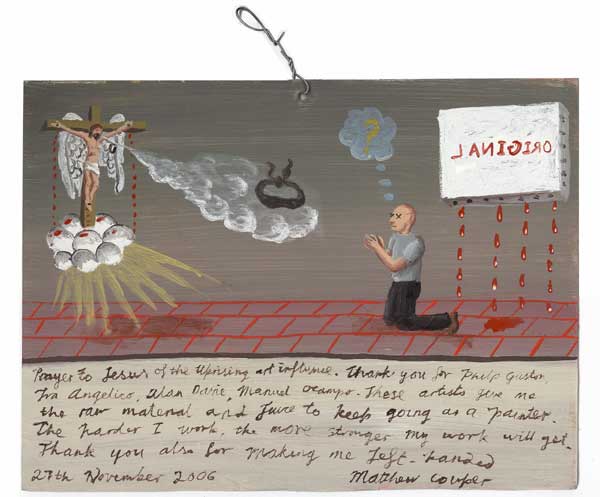 LANIGIRO
?
Prayer to Jesus of the Uprising art influence. Thank you for Philip Guston,
Fra Angelico, Alan Davie, Manuel Ocampo. These artists give me
the raw material and to keep going as a painter.
The harder I work, the more stronger my work will get.
Thank you also for making me left-handed
27th November 2006 Matthew Couper